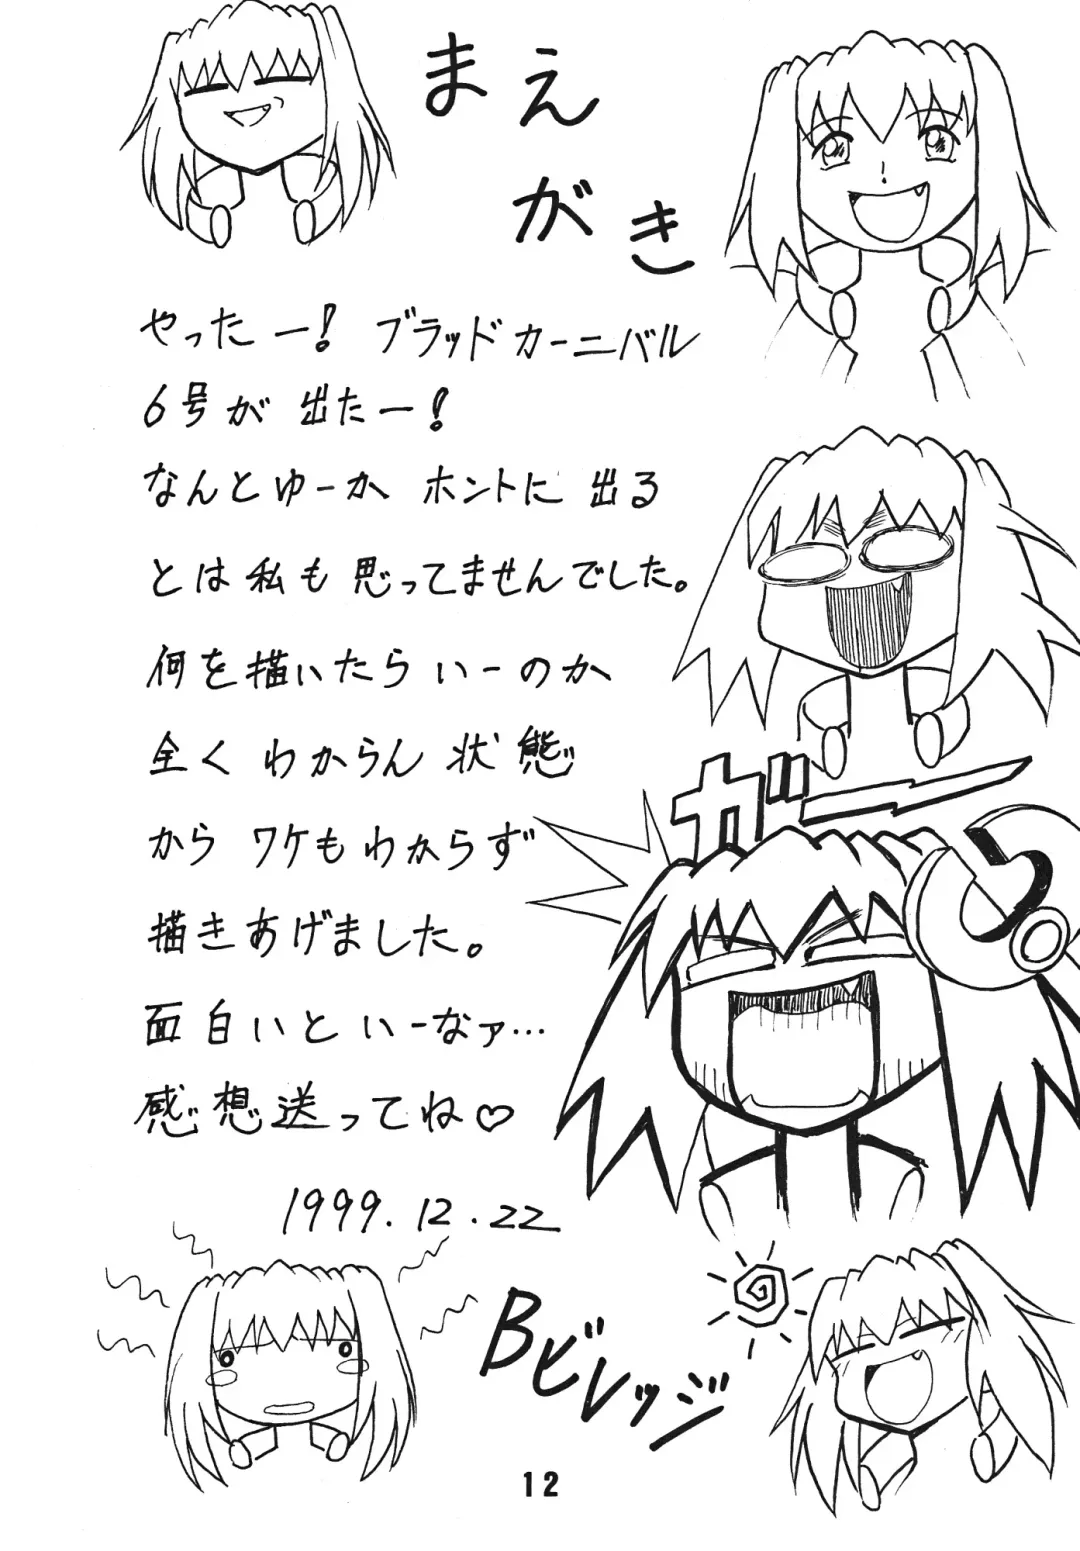 まえがき
やったー! ブラッドカーニバル
6号が 出たー!
なんとゆーか ホントに 出る
とは 私も 思ってませんでした。
何を描いたらいーのか
全く わからん 状態
から ワケもわからず
描きあげました。
面白いといーなァ…
感想送ってね♡
1999.12.22
ガー
Bビレッジ
12